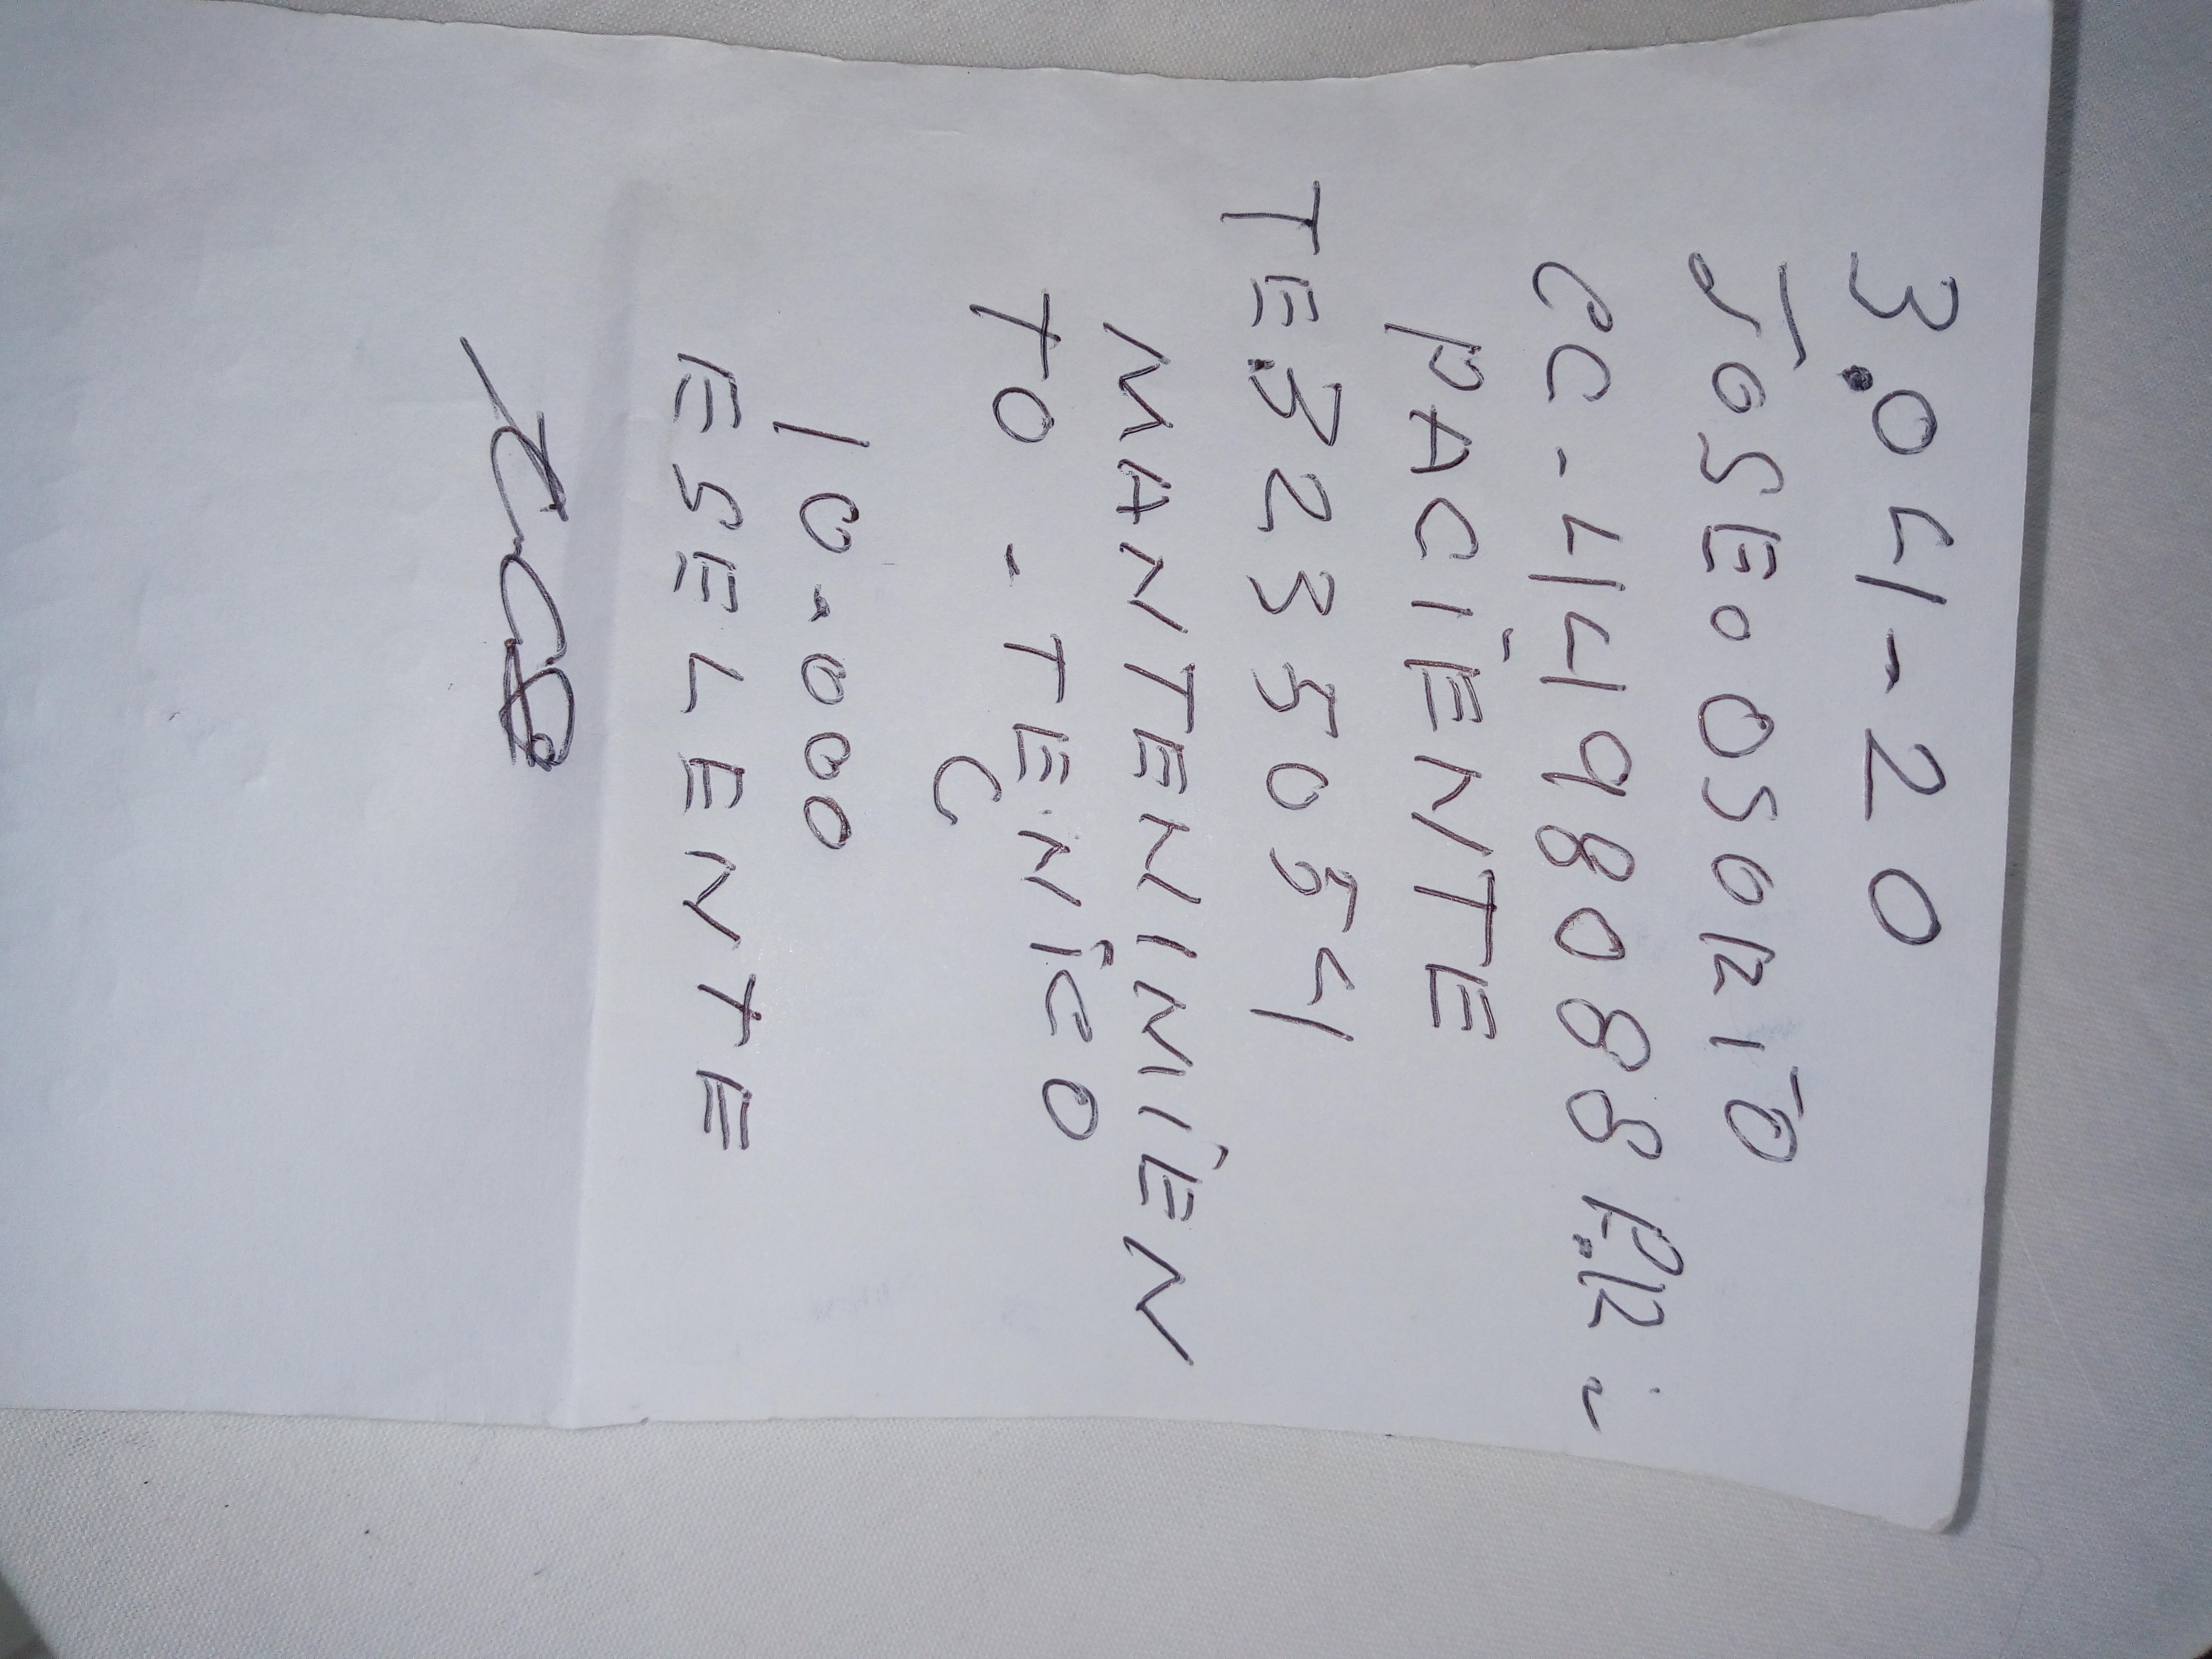 3.04-20
JOSE.OSORIO
CC-44980888 P.R.
PACIENTE
TE.3235054
MANTENIMIEN
TO - TE.NICO
C
10.000
ESELENTE